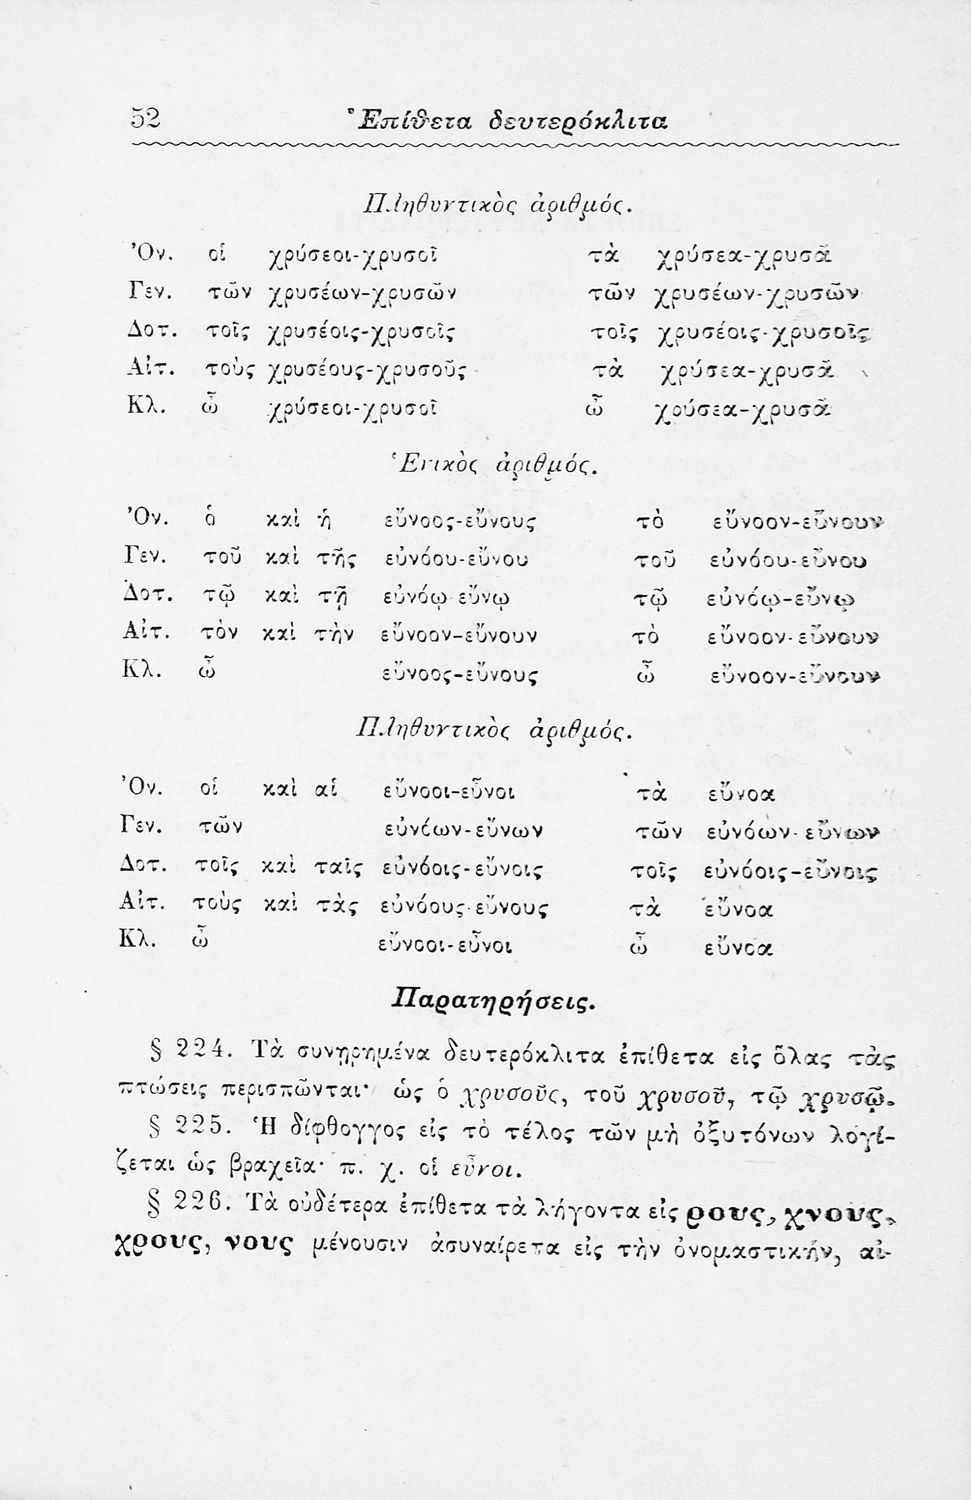 52 Ἐπίθετα δευτερόκλιτα
Πληθυντικὸς ἀριθμός.
Ὀν. οἱ χρύσεοι-χρυσοῖ τὰ χρύσεα-χρυσᾶ
Γεν. τῶν χρυσέων-χρυσῶν τῶν χρυσέων-χρυσῶν
Δοτ. τοῖς χρυσέοις-χρυσοῖς τοῖς χρυσέοις-χρυσοῖς
Αἰτ. τοὺς χρυσέους-χρυσοῦς τὰ χρύσεα-χρυσᾶ
Κλ. ὦ χρύσεοι-χρυσοῖ ὦ χρύσεα-χρυσᾶ
Ἑνικὸς ἀριθμός.
Ὀν. ὁ καὶ ἡ εὔνοος-εὔνους τὸ εὔνοον-εὔνουν
Γεν. τοῦ καὶ τῆς εὐνόου-εὔνου τοῦ εὐνόου-εὔνου
Δοτ. τῷ καὶ τῇ εὐνόῳ-εὔνῳ τῷ εὐνόῳ-εὔνῳ
Αἰτ. τὸν καὶ τὴν εὔνοον-εὔνουν τὸ εὔνοον-εὔνουν
Κλ. ὦ εὔνοος-εὔνους ὦ εὔνοον-εὔνουν
Πληθυντικὸς ἀριθμός.
Ὀν. οἱ καὶ αἱ εὔνοοι-εὖνοι τὰ εὔνοα
Γεν. τῶν εὐνόων-εὔνων τῶν εὐνόων-εὔνων
Δοτ. τοῖς καὶ ταῖς εὐνόοις-εὔνοις τοῖς εὐνόοις-εὔνοις
Αἰτ. τοὺς καὶ τὰς εὐνόους-εὔνους τὰ εὔνοα
Κλ. ὦ εὔνοοι-εὖνοι ὦ εὔνοα
Παρατηρήσεις.
§ 224. Τὰ συνῃρημένα δευτερόκλιτα ἐπίθετα εἰς ὅλας τὰς
πτώσεις περισπῶνται· ὡς ὁ χρυσοῦς, τοῦ χρυσοῦ, τῷ χρυσῷ.
§ 225. Ἡ δίφθογγος εἰς τὸ τέλος τῶν μὴ ὀξυτόνων λογί-
ζεται ὡς βραχεῖα· π. χ. οἱ εὖνοι.
§ 226. Τὰ οὐδέτερα ἐπίθετα τὰ λήγοντα εἰς ρους, χνους,
χρους, νους μένουσιν ἀσυναίρετα εἰς τὴν ὀνομαστικήν, αἰ-